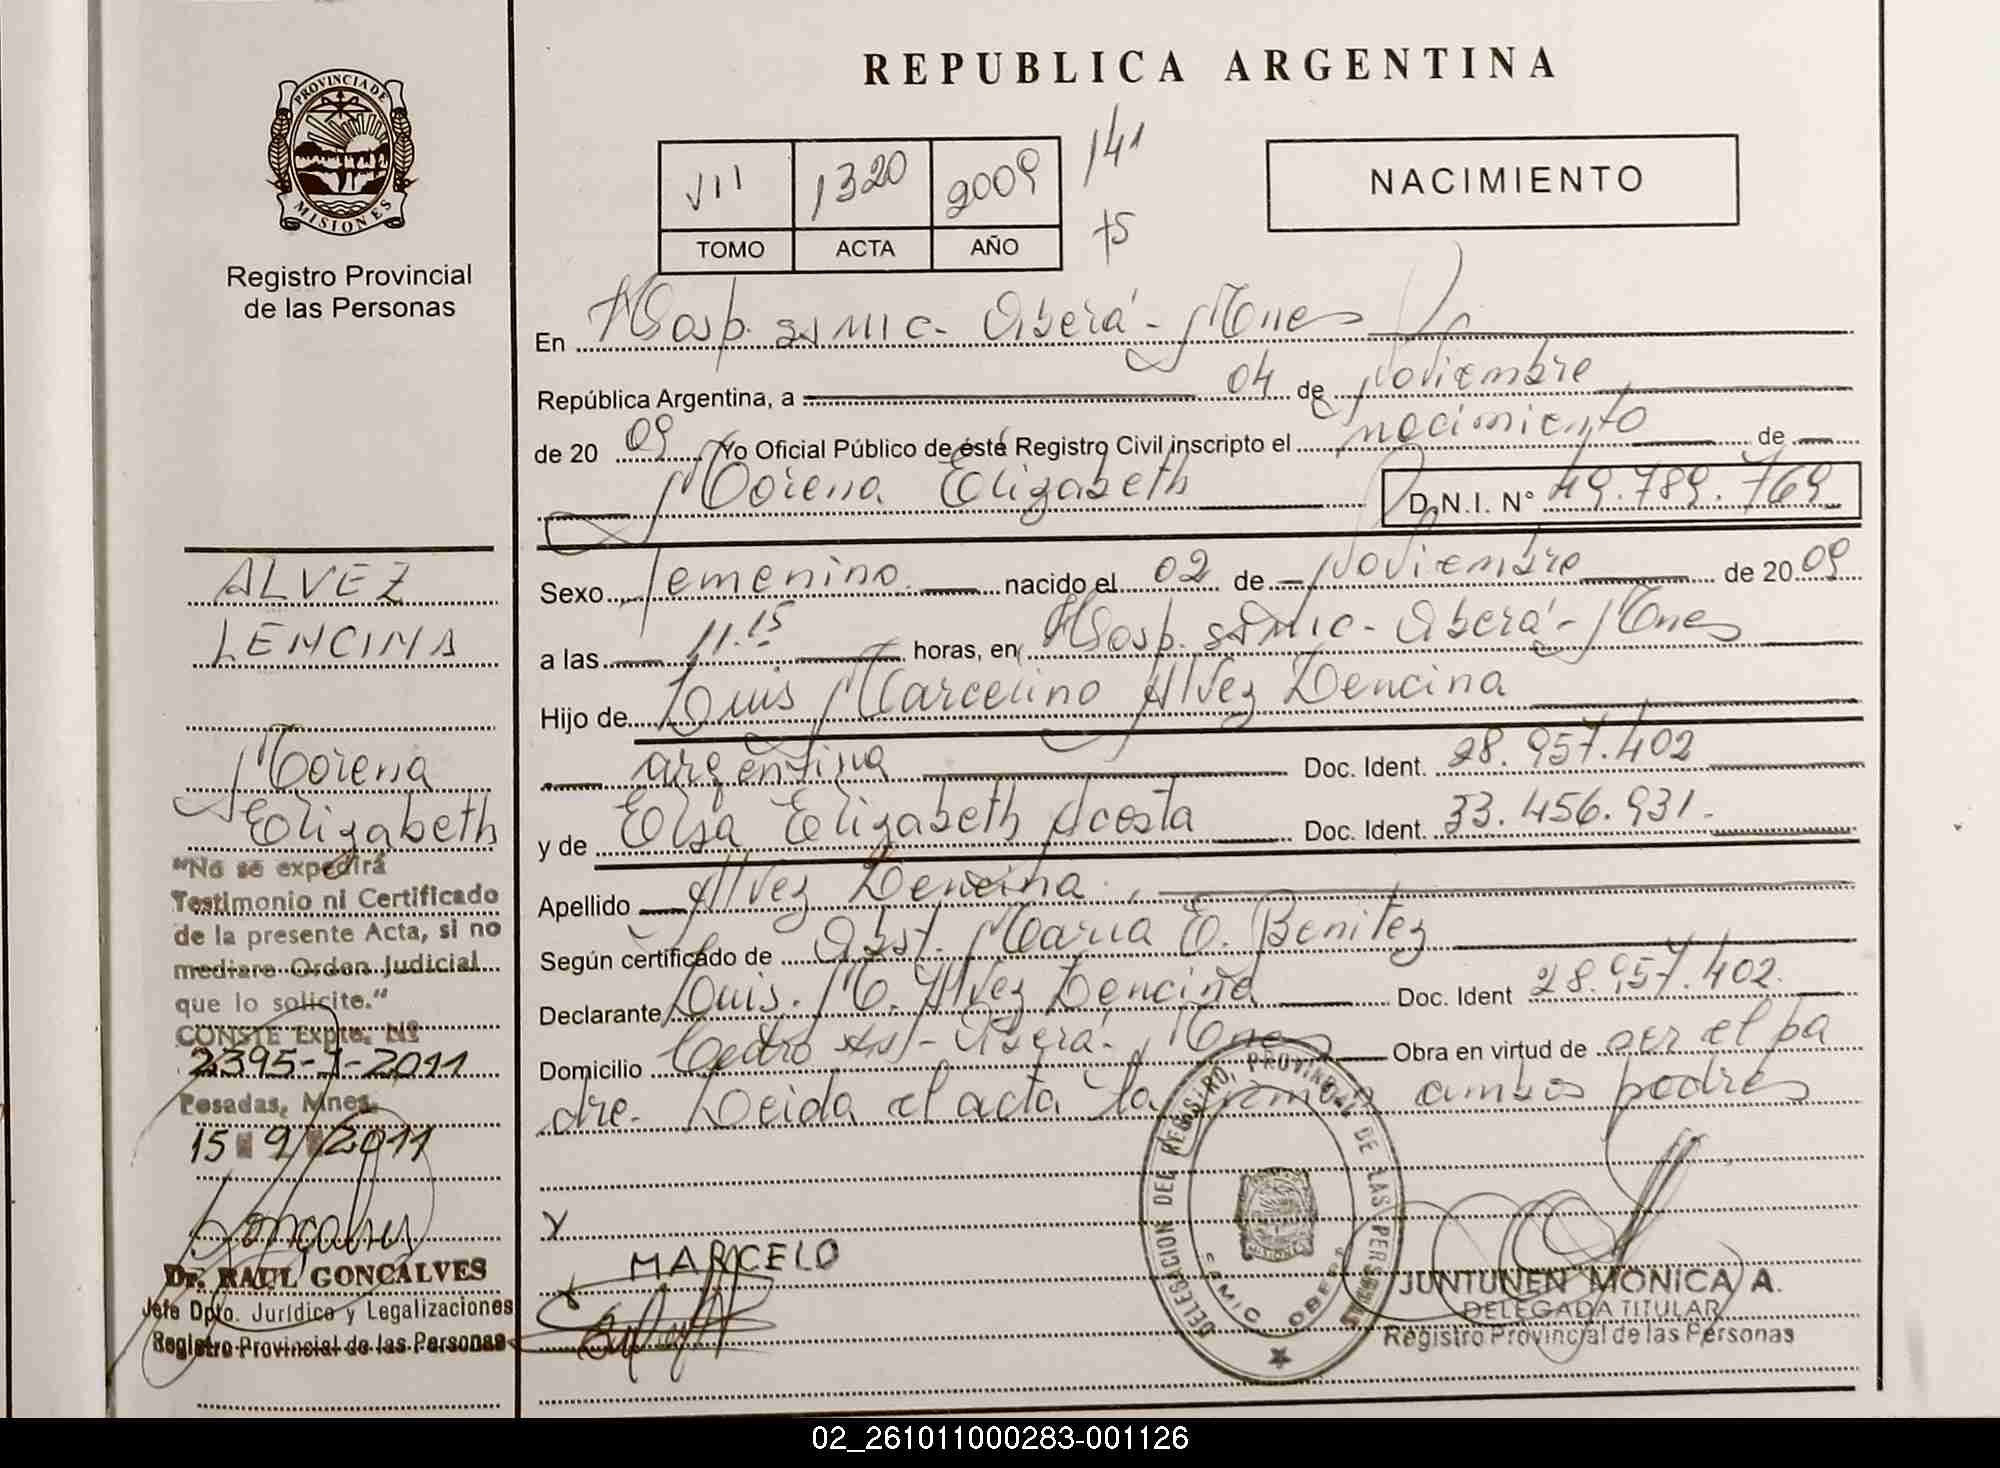 PROVINCIA DE
MISIONES
Registro Provincial
de las Personas
ALVEZ
LENCINA
Morena
Elizabeth
"No se expedirá
Testimonio ni Certificado
de la presente Acta, si no
mediare Orden Judicial
que lo solicite."
CONSTE Expte. Nº
2395-J-2011
Posadas, Mnes.
15 9 2011
Dr. RAUL GONCALVES
Jefe Dpto. Jurídico y Legalizaciones
Registro Provincial de las Personas
REPUBLICA ARGENTINA
VII 1320 2009 141
TOMO ACTA AÑO 75
NACIMIENTO
En Hosp. SAMIC - Oberá - Mnes
República Argentina, a 04 de Noviembre
de 2009 Yo Oficial Público de éste Registro Civil inscripto el nacimiento de
Morena Elizabeth D.N.I. N° 49.789.769
Sexo femenino nacido el 02 de Noviembre de 2009
a las 11.15 horas, en Hosp. SAMIC - Oberá - Mnes
Hijo de Luis Marcelino Alvez Lencina
argentina Doc. Ident. 28.957.402
y de Elsa Elizabeth Acosta Doc. Ident. 33.456.931.-
Apellido Alvez Lencina.
Según certificado de Obst. Maria E. Benitez
Declarante Luis. M. Alvez Lencina Doc. Ident 28.957.402.
Domicilio Cedro - Oberá - Mnes Obra en virtud de ser el pa
dre. Leida el acta la firman ambos padres
MARCELO
DELEGACION DEL REGISTRO PROVINCIAL DE LAS PERSONAS
SAMIC OBERA
JUNTUNEN MONICA A.
DELEGADA TITULAR
Registro Provincial de las Personas
02_261011000283-001126